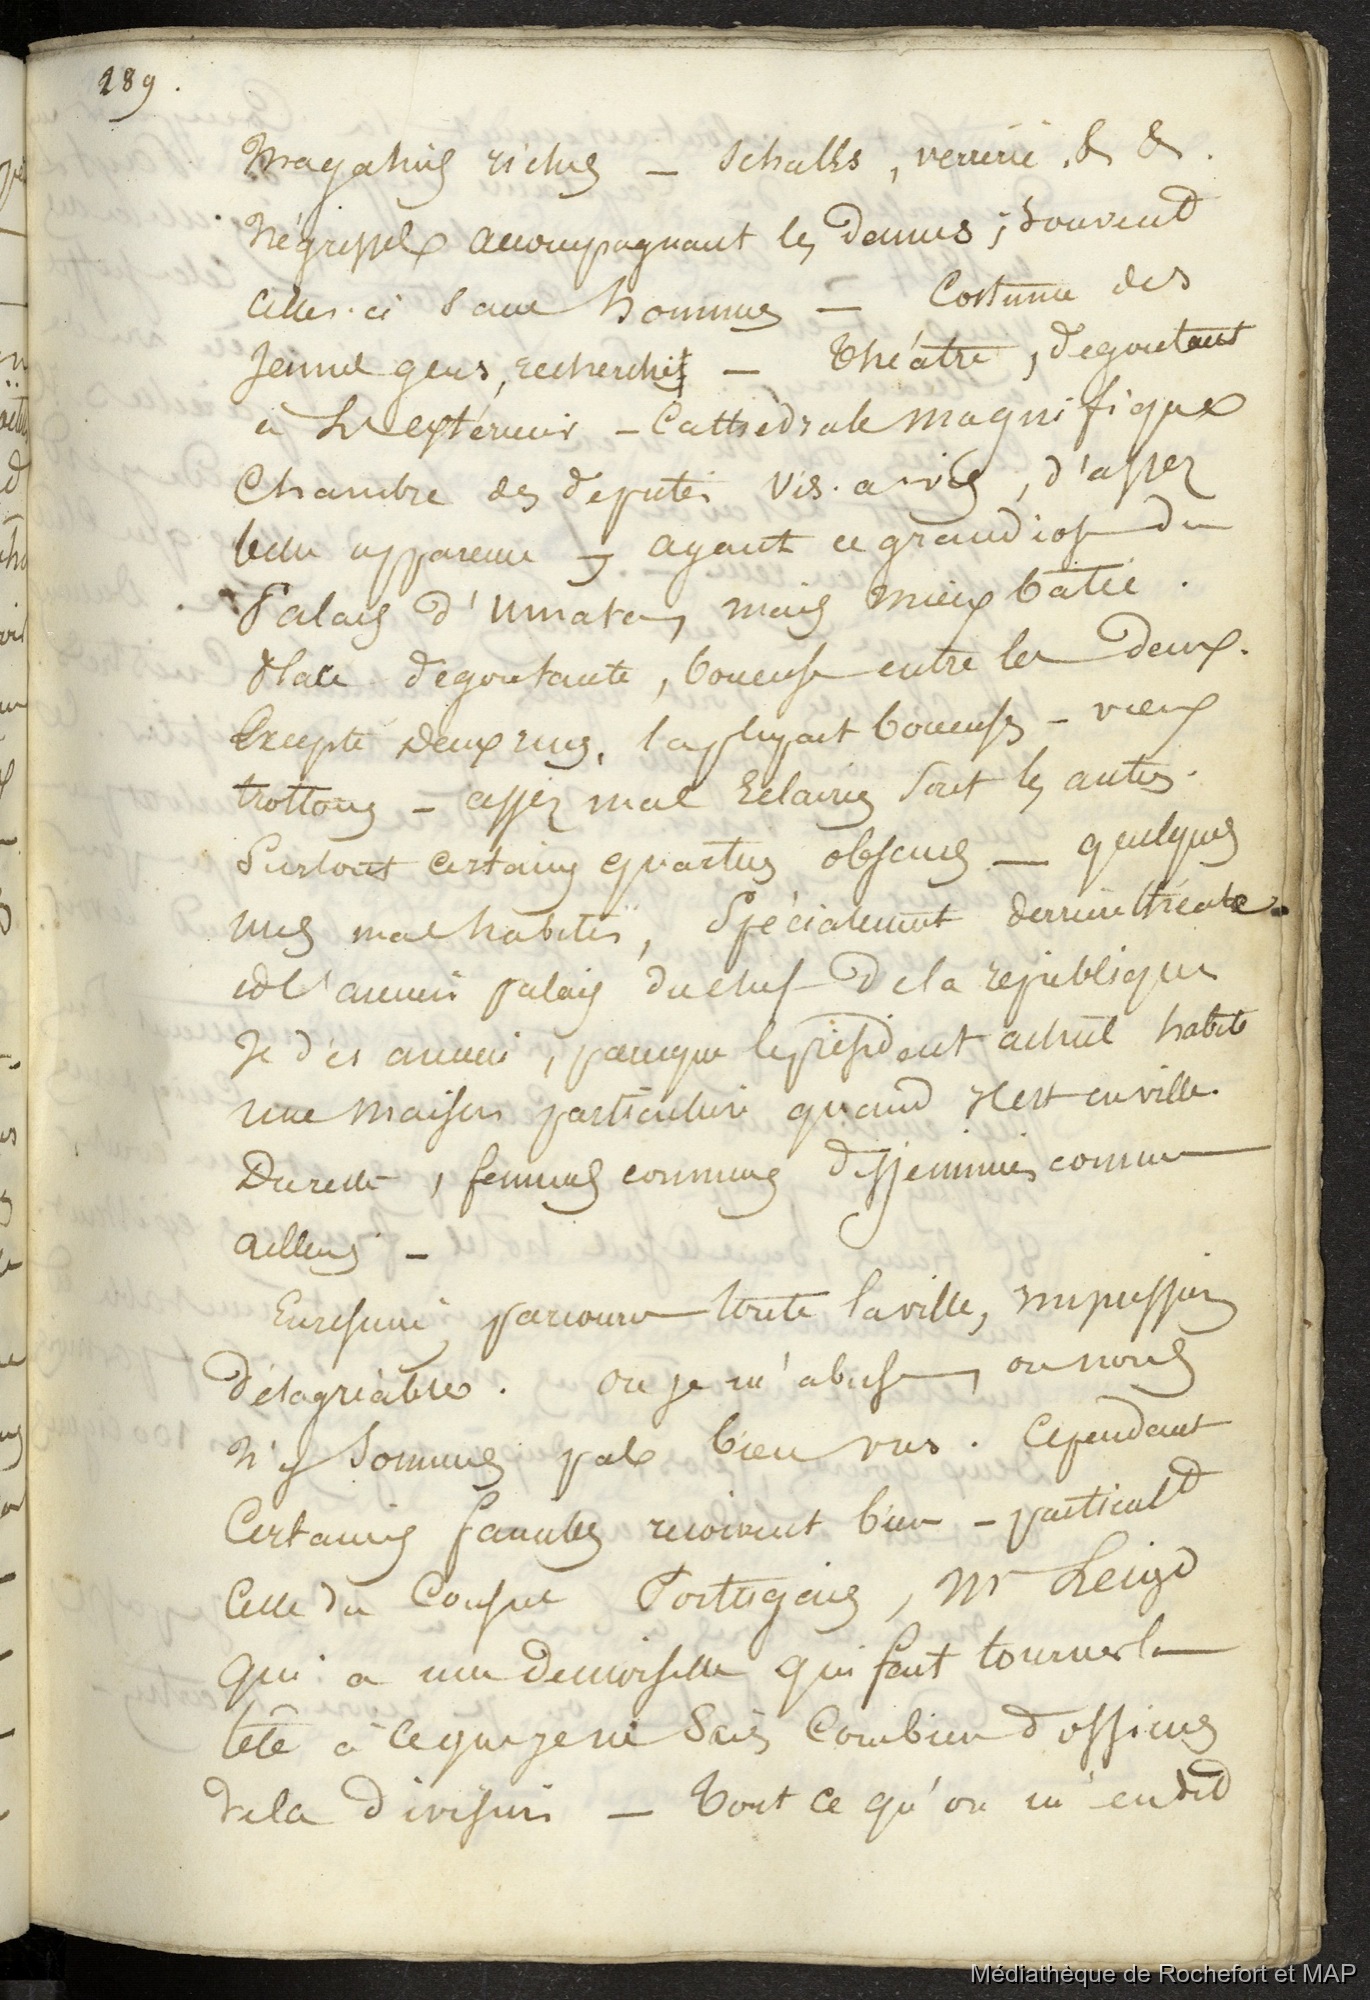 289.
Magasins riches – Schalls, verrerie, & &.
Négresses accompagnant les dames ; souvent
celles-ci sans hommes – Costume des
jeunes gens, recherché – Théâtre, degoutant
à l'extérieur – Cathédrale magnifique
Chambre des députés vis-a-vis, d'assez
belle apparence, ayant ce grandiose du
Palais d', mais mieux batie.
Place dégoutante, boueuse entre les deux.
Excepté deux rues, la plupart boueuses – vieux
trottoirs – assez mal Eclairés sont les autres.
Surtout certains quartiers obscurs – quelques
rues mal habitées, Spécialement derrière théatre
et l'ancien palais du chef de la république
Je dis ancien, parceque le président actuel habite
une maison particulière quand il est en ville.
Du reste, femmes communes disséminées comme
ailleurs –
En résumé, parcouru toute la ville, impression
désagréable. ou je m'abuse, ou nous
n'y sommes pas bien vus. Cependant
Certaines familles reçoivent bien – particult
Celle du Consul Portugais, Mr
qui a une demoiselle qui fait tourner la
tête à ce que je ne sais combien d'officiers
de la division – Tout ce qu'on m'en dit
Médiathèque de Rochefort et MAP